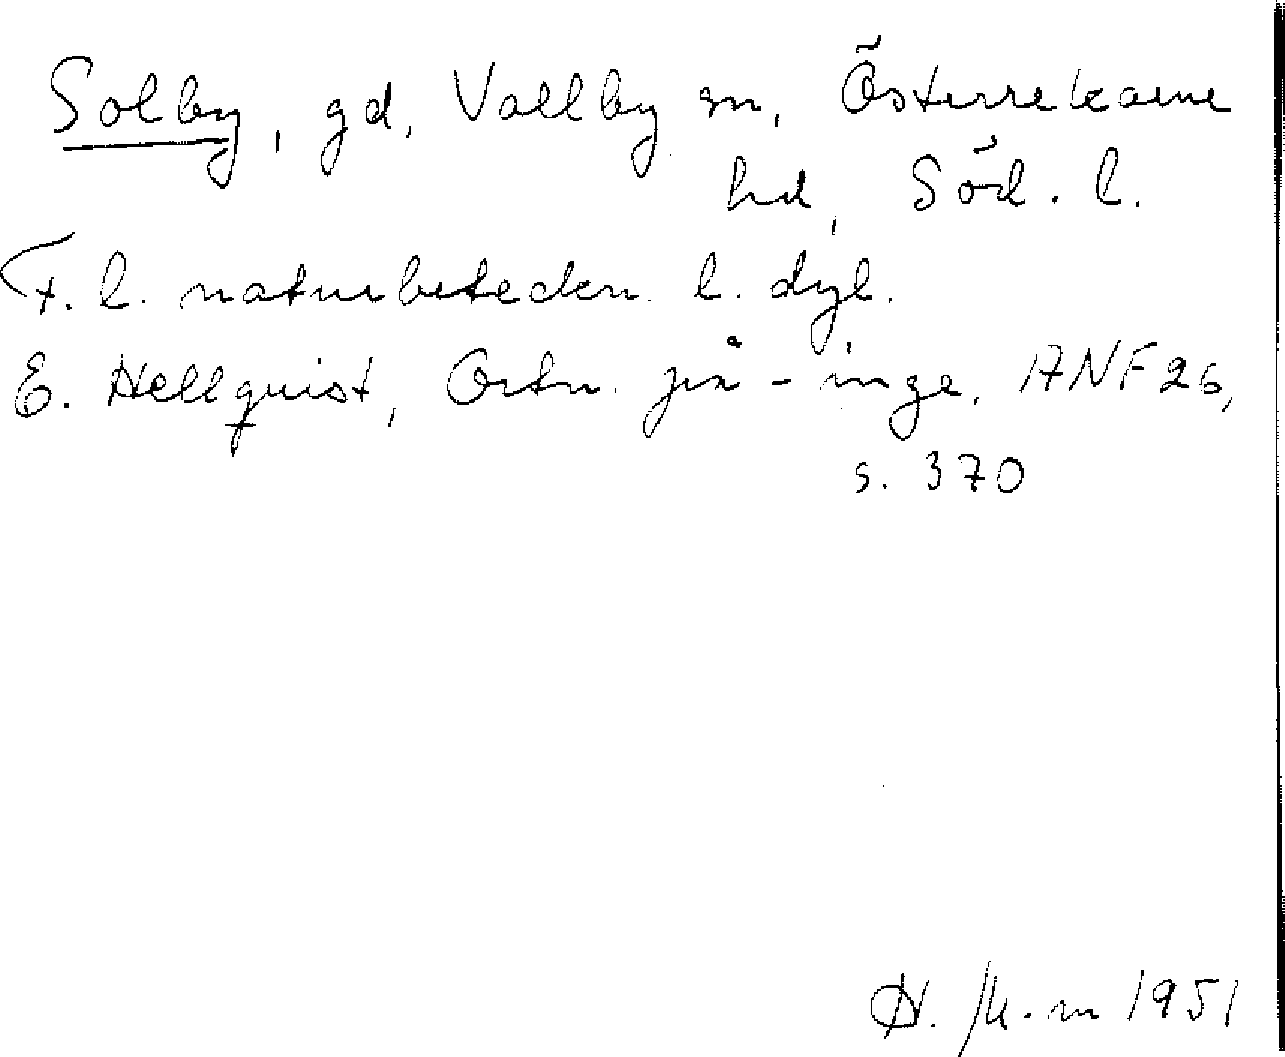 Solby, gd, Vallby sn, Österrekarne
hd, Söd. l.
F. l. naturbeteckn. l. dyl.
E. Hellquist, Ortn. på -inge, ANF 26,
s. 370
1951